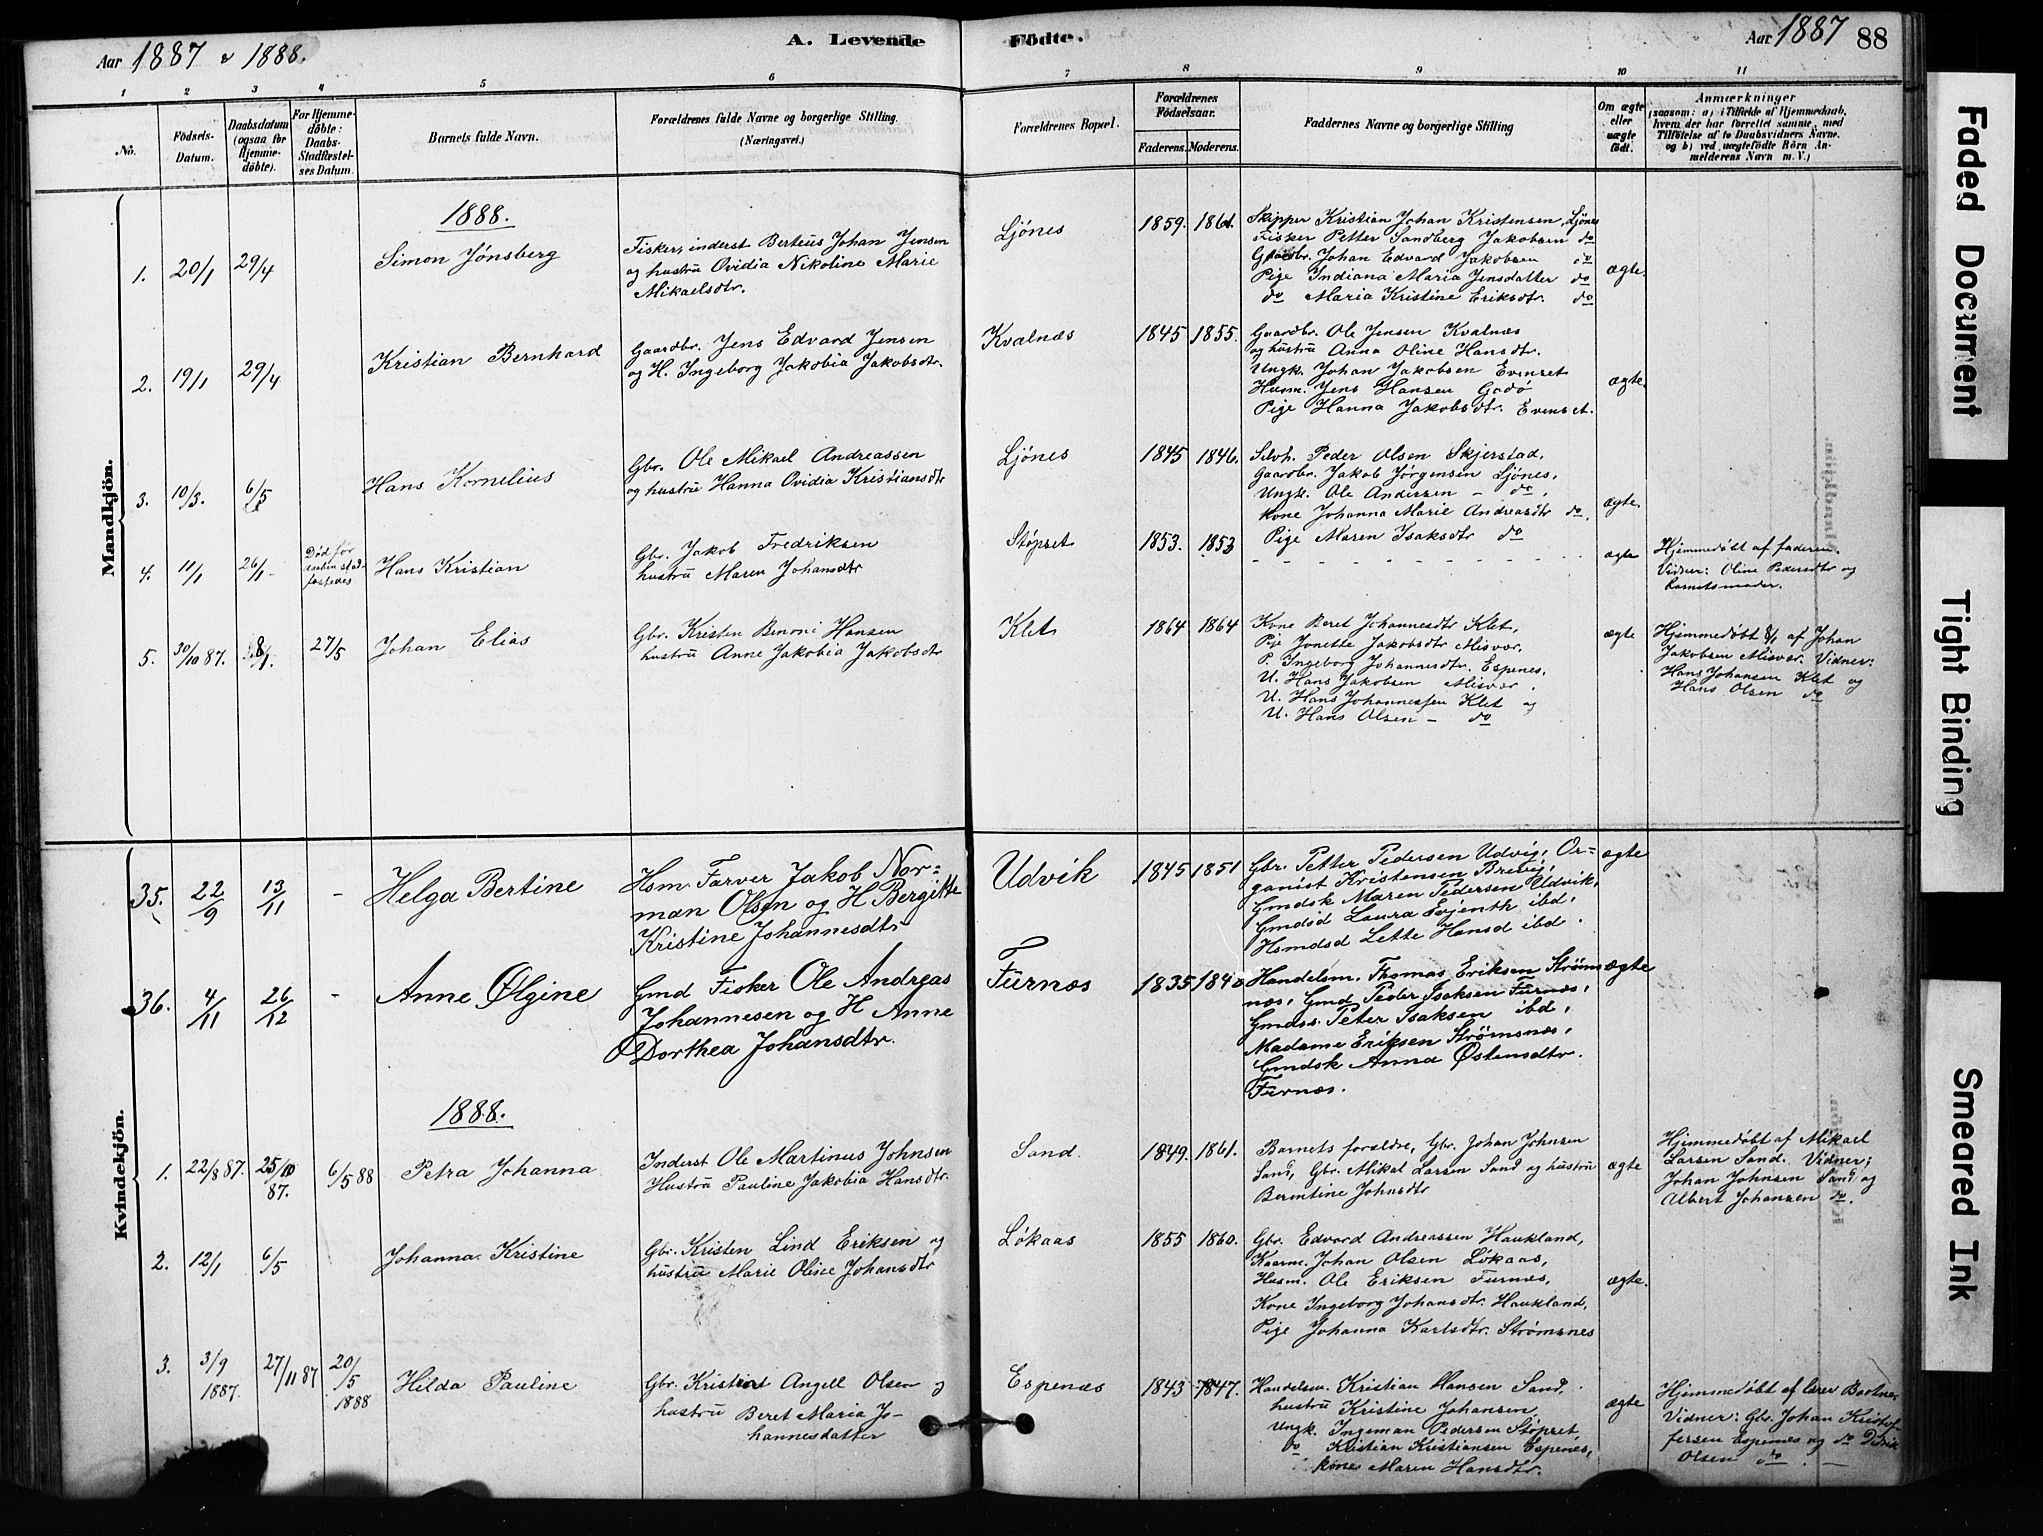 Aar 1887 & 1888.
A. Levende Födte.
Aar 1887
88
1 2 3 4 5 6 7 8 9 10 11
No.
Födsels-Datum.
Daabsdatum (ogsaa for Hjemmedöbte).
For Hjemmedöbte: Daabs-Stadfæstelses Datum.
Barnets fulde Navn.
Forældrenes fulde Navne og borgerlige Stilling. (Næringsvei.)
Forældrenes Bopæl.
Forældrenes Födselsaar.
Faderens. Moderens.
Faddernes Navne og borgerlige Stilling
Om ægte eller uægte födt.
Anmærkninger
(saasom: a) i Tilfælde af Hjemmedaab, hvem der har forrettet samme, med Tilföielse af to Daabsvidners Navne. og b) ved uægtefödte Börn Anmelderens Navn m. V.)
Mandkjön.
1888.
1. 20/1 29/4 Simon Jónsberg
Fisker, inderst Berteus Johan Jensen
og hustru Ovidia Nikoline Marie
Mikaelsdtr.
Ljónes 1859. 1861.
Skipper Kristian Johan Kristensen, Ljónes
Fisker Petter Sandberg Jakobsen do
Gaardbr. Johan Edvard Jakobsen do
Pige Indiana Maria Jensdatter do
do Maria Kristine Eriksdtr. do
ægte
2. 19/1 29/4 Kristian Bernhard
Gaardbr. Jens Edvard Jensen
og H. Ingeborg Jakobia Jakobsdtr.
Kvalnæs 1845 1855.
Gaardbr. Ole Jensen Kvalnæs
og hustru Anna Oline Hansdtr.
Ungk. Johan Jakobsen Evenset
Husm. Jens Hansen Godö
Pige Hanna Jakobsdtr. Evenset.
ægte.
3. 10/3. 6/5 Hans Kornelius
Gbr. Ole Mikael Andreassen
og hustru Hanna Ovidia Kristiansdtr
Ljónes 1845 1846.
Selvh. Peder Olsen Skjerstad,
Gaardbr. Jakob Jörgensen Ljónes,
Ungk. Ole Andersen - do,
Kone Johanna Marie Andreasdtr do,
Pige Maren Isaksdtr do
ægte
4. 11/1 26/1- Död för daaben stadfæstedes Hans Kristian
Gbr. Jakob Fredriksen
hustru Maren Johansdtr
Stöpset 1853. 1853
- - - - - - - -
ægte
Hjemmedöbt af faderen.
Vidner: Oline Pedersdtr og
barnetsmoder.
5. 30/10 87. 8/1. 27/5 Johan Elias
Gbr. Kristen Benoni Hansen
hustru Anne Jakobia Jakobsdtr
Klet 1864 1864
Kone Beret Johannesdtr Klet,
Pige Jonette Jakobsdtr Misvær,
P. Ingeborg Johannesdtr. Espenes,
U. Hans Jakobsen Misvær,
U. Hans Johannessen Klet og
U. Hans Olsen - do
ægte
Hjemmedöbt 8/1 af Johan
Jakobsen Misvær. Vidner:
Hans Johansen Klet og
Hans Olsen do
Kvindekjön.
35. 22/9 13/11 - Helga Bertine
Hsm. Farver Jakob Nor-
man Olsen og H Bergitte
Kristine Johannesdtr
Udvik 1845 1851
Gbr. Petter Pedersen Udvig, Or-
ganist Kristensen Brevig,
Gmdsk Maren Pedersen Udvik,
Gmdsd Laura Evjenth ibd,
Hsmdsd Lette Hansd ibd.
ægte
36. 4/11 26/12 - Anne Ølgine
Gmd Fisker Ole Andreas
Johannesen og H Anne
Dorthea Johansdtr.
Furnæs 1835 1840
Handelsm. Thomas Eriksen Strøms
næs, Gmd Peder Isaksen Furnæs,
Gmdss. Peter Isaksen ibd,
Madame Eriksen Strømsnæs,
Gmdsk Anna Østensdtr.
Furnæs.
ægte
1888.
1. 22/8 87. 25/10 87. 6/5 88 Petra Johanna
Inderst Ole Martinus Johnsen
Hustru Pauline Jakobia Hansdtr.
Sand. 1849. 1861.
Barnets forældre, Gbr. Johan Johnsen
Sand, Gbr. Mikal Larsen Sand og hustru
Berentine Johnsdtr
ægte
Hjemmedöbt af Mikael
Larsen Sand. Vidner;
Johan Johnsen Sand, og
Albert Johansen do.
2. 12/1 6/5 Johanna Kristine
Gbr. Kristen Lind Eriksen og
hustru Marie Oline Johansdtr
Løkaas 1855 1860.
Gbr. Edvard Andreassen Haukland,
Kaarm. Johan Olsen Løkaas,
Husm. Ole Eriksen Furnæs,
Kone Ingeborg Johansdtr. Haukland,
Pige Johanna Karlsdtr. Strømsnes
ægte.
3. 3/9 1887. 27/11 87 20/5 1888 Hilda Pauline
Gbr. Kristian Angell Olsen og
hustru Beret Maria Jo-
hannesdatter
Espenæs 1843 1847.
Handelsm. Kristian Hansen Sand,
hustru Kristine Johansen
Ungk. Ingeman Pedersen Stöpset,
do Kristian Kristiansen Espenes,
kone Maren Hansdtr.
ægte
Hjemmedöbt af lærer
Vidner: Gbr. Johan Kristof-
fersen Espenes og do Didrik
Olsen do.
Faded Document
Tight Binding
Smeared Ink